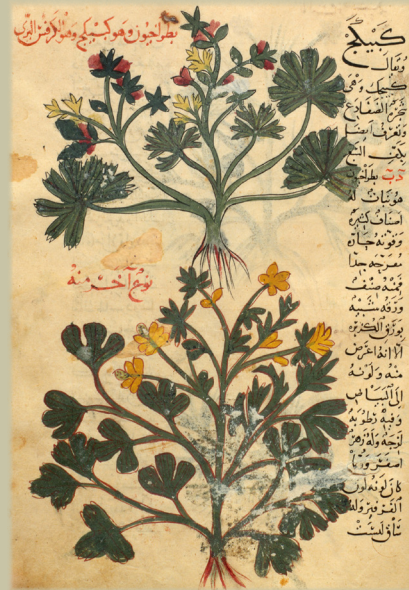 بطراخيون وهو كبيكج وهو الكرفس البري
كبيكج
ويقال
كبيكج وهي
شجرة الضفادع
وتعرف ايضا
بكف السبع
بطراخيون
هو نبات له
اصناف كثيرة
وقوته حادة
مقرحة جدا
فمنه صنف
ورقه شبيه
بورق الكزبرة
الا انه اعرض
منه ولونه
الى البياض
وفيه رطوبة
لزجة وله زهر
اصفر وربما
كان لونه لون
الفرفير وله
ساق ليست
نوع اخر منه